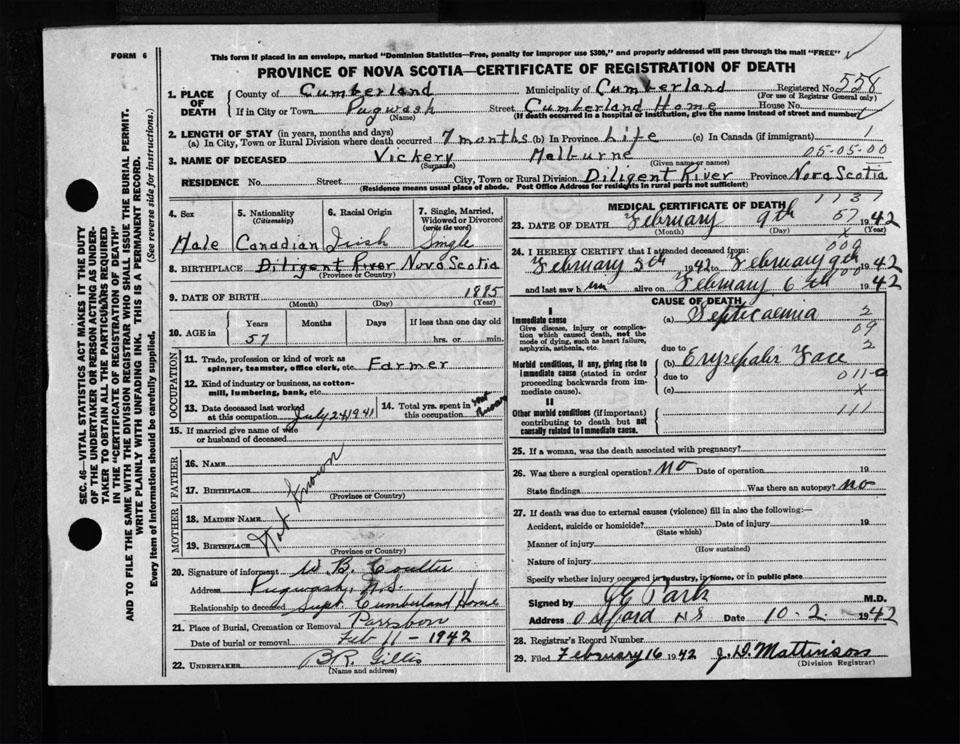 FORM 6
This form if placed in an envelope, marked "Dominion Statistics—Free, penalty for improper use $300," and properly addressed will pass through the mail "FREE"
PROVINCE OF NOVA SCOTIA—CERTIFICATE OF REGISTRATION OF DEATH
558
1. PLACE OF DEATH County of Cumberland Municipality of Cumberland Registered No.
(For use of Registrar General only)
If in City or Town Pugwash Street Cumberland Home House No.
(Name) (If death occurred in a hospital or institution, give the name instead of street and number)
2. LENGTH OF STAY (in years, months and days)
(a) In City, Town or Rural Division where death occurred 7 months (b) In Province Life (c) In Canada (if immigrant) 1
3. NAME OF DECEASED Vickery Melburne 05-05-00
(Surname) (Given name or names)
RESIDENCE No. Street City, Town or Rural Division Diligent River Province Nova Scotia
(Residence means usual place of abode. Post Office Address for residents in rural parts not sufficient)
4. Sex 5. Nationality (Citizenship) 6. Racial Origin 7. Single, Married, Widowed or Divorced (write the word)
Male Canadian Irish Single
8. BIRTHPLACE Diligent River Nova Scotia
(Province or Country)
9. DATE OF BIRTH 1885
(Month) (Day) (Year)
10. AGE in Years Months Days If less than one day old
57 hrs. or min.
OCCUPATION
11. Trade, profession or kind of work as spinner, teamster, office clerk, etc. Farmer
12. Kind of industry or business, as cotton-mill, lumbering, bank, etc.
13. Date deceased last worked at this occupation July 24 1941 14. Total yrs. spent in this occupation not known
15. If married give name of wife or husband of deceased
FATHER
16. Name
17. Birthplace
(Province or Country)
Not Known
MOTHER
18. Maiden Name
19. Birthplace
(Province or Country)
20. Signature of informant W. B. Coulter
Address Pugwash, N.S.
Relationship to deceased Supt. Cumberland Home
21. Place of Burial, Cremation or Removal Parrsboro
Date of burial or removal Feb 11 - 1942
22. UNDERTAKER B.R. Gillis
(Name and address)
MEDICAL CERTIFICATE OF DEATH 1737
23. DATE OF DEATH February 9th 57 1942
(Month) (Day) x (Year)
24. I HEREBY CERTIFY that I attended deceased from: 009
February 5th 1942 to February 9th 1942
and last saw him alive on February 6th 1942
CAUSE OF DEATH
I
Immediate cause (a) Septicaemia 2
Give disease, injury or complication which caused death, not the mode of dying, such as heart failure, asphyxia, asthenia, etc.
09
due to 2
Morbid conditions, if any, giving rise to immediate cause (stated in order proceeding backwards from immediate cause). (b) Face
due to 011-0
(c) x
II
Other morbid conditions (if important) contributing to death but not causally related to immediate cause. 111
25. If a woman, was the death associated with pregnancy?
26. Was there a surgical operation? no Date of operation 19
State findings Was there an autopsy? no
27. If death was due to external causes (violence) fill in also the following:—
Accident, suicide or homicide? Date of injury 19
(State which)
Manner of injury
(How sustained)
Nature of injury
Specify whether injury occurred in industry, in home, or in public place
Signed by Park M.D.
Address Oxford NS Date 10-2- 1942
28. Registrar's Record Number
29. Filed February 16 1942 J. D. Mattinson
(Division Registrar)
SEC. 46—VITAL STATISTICS ACT MAKES IT THE DUTY
OF THE UNDERTAKER OR PERSON ACTING AS UNDER-
TAKER TO OBTAIN ALL THE PARTICULARS REQUIRED
IN THE "CERTIFICATE OF REGISTRATION OF DEATH"
AND TO FILE THE SAME WITH THE DIVISION REGISTRAR WHO SHALL ISSUE THE BURIAL PERMIT.
WRITE PLAINLY WITH UNFADING INK. THIS IS A PERMANENT RECORD.
Every item of information should be carefully supplied. (See reverse side for instructions.)